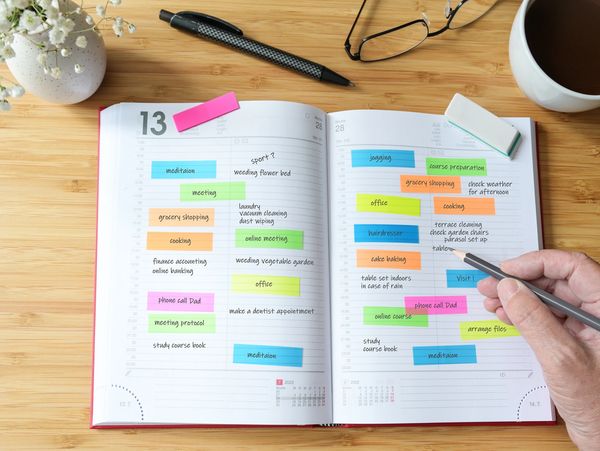 13
sport?
meditaion
weeding flower bed
meeting
laundry
vacuum cleaning
dust wiping
grocery shopping
cooking
online meeting
finance accounting
online banking
weeding vegetable garden
office
phone call Dad
make a dentist appointment
meeting protocol
study course book
meditaion
28
jogging
course preparation
grocery shopping
check weather
for afternoon
office
cooking
terrace cleaning
check garden chairs
parasol set up
hairdresser
table
cake baking
Visit
table set indoors
in case of rain
phone call Dad
online course
arrange files
study
course book
meditaion